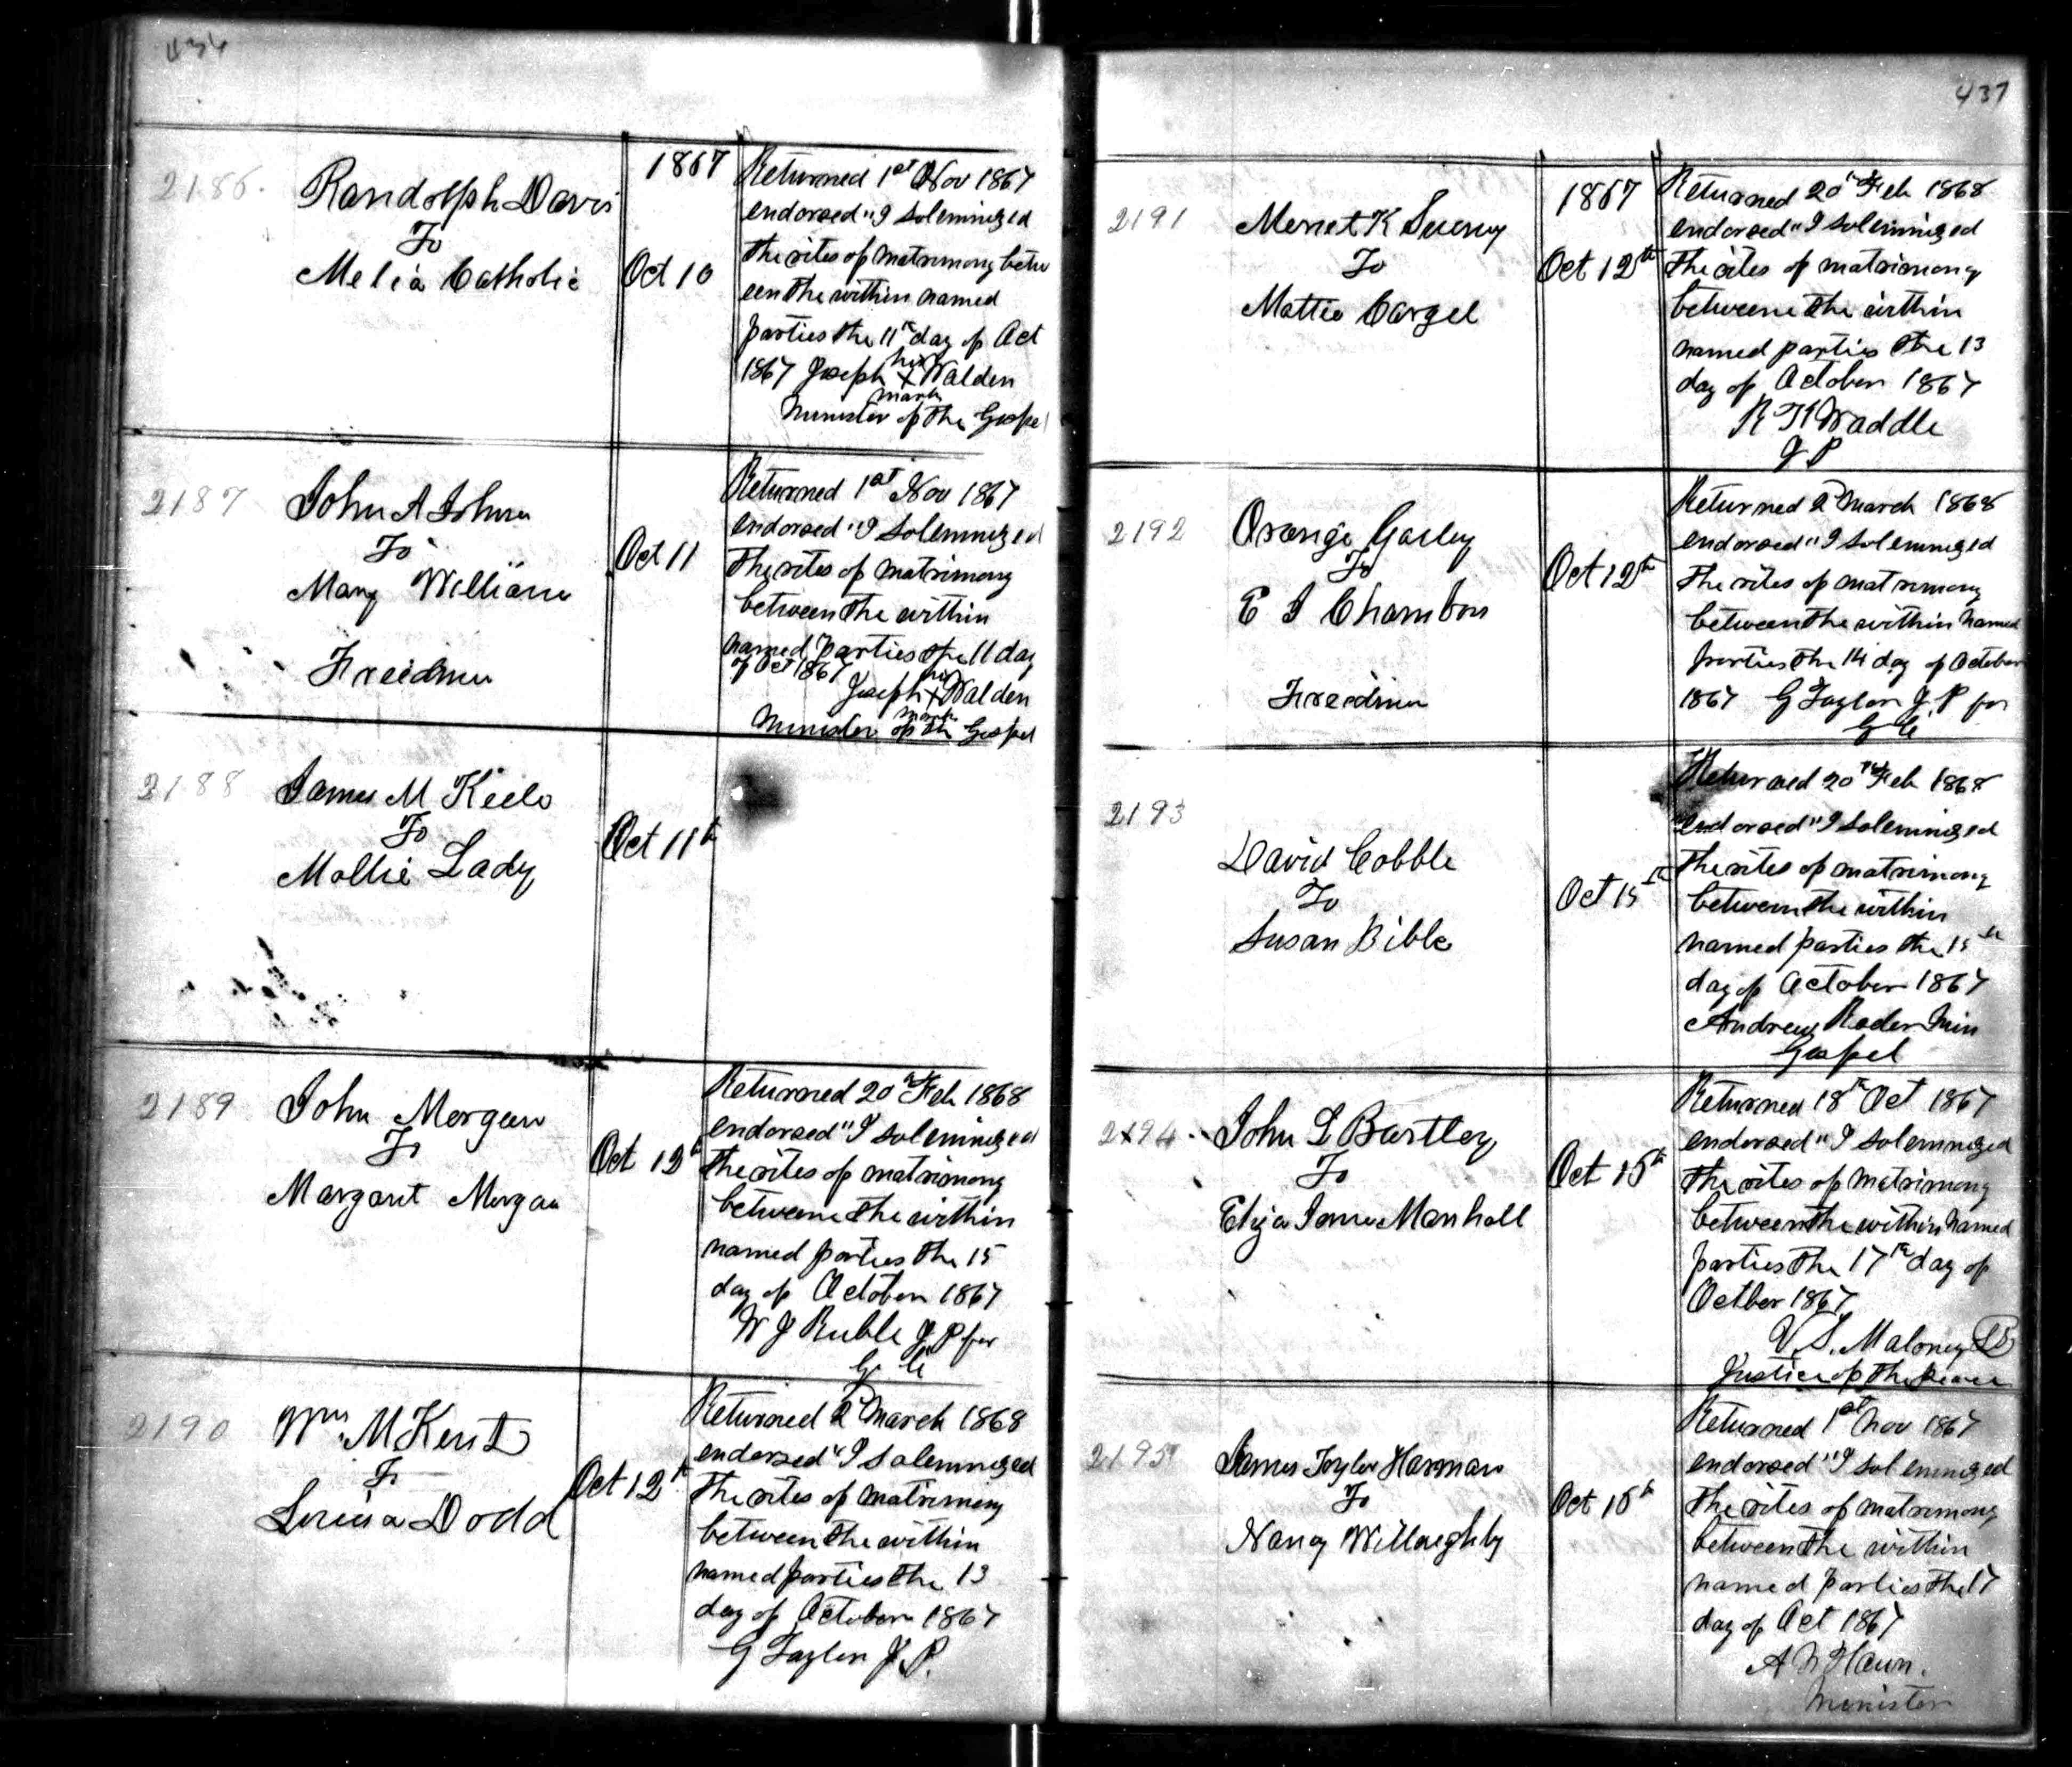 436
2186.
Randolph Davis
To
Melia Catholic
1867
Oct 10
Returned 1st Nov 1867
endorsed "I Solemnized
the rites of matrimony betw
een the within named
parties the 11th day of Oct
1867 Joseph his X mark Walden
Minister of the Gospel
2187
John A Johnson
To
Mary Williams
Freedmen
Oct 11
Returned 1st Nov 1867
endorsed "I Solemnized
the rites of matrimony
between the within
named parties the 11 day
of Oct 1867
Joseph his X mark Walden
Minister of the Gospel
2188
James M Keelo
To
Mollie Lady
Oct 11th
2189
John Morgan
To
Margaret Morgan
Oct 12th
Returned 20th Feb 1868
endorsed "I solemnized
the rites of matrimony
betweene the within
named parties the 15
day of October 1867
W J Ruble J P for
G C
2190
Wm M Kent
To
Louisa Dodd
Oct 12th
Returned 2d March 1868
endorsed "I Solemnized
the rites of matrimony
between the within
named parties the 13
day of October 1867
G Taylor J. P.
437
2191
K
To
Mattie Cargel
1867
Oct 12th
Returned 20th Feb 1868
endorsed "I solemnized
the rites of matrimony
betweene the within
named parties the 13
day of October 1867
R H Waddle
J P
2192
Orange Gailey
To
E J Chambers
Freedmen
Oct 12th
Returned 2d March 1868
endorsed "I solemnized
the rites of matrimony
between the within named
parties the 14 day of October
1867 G Taylor J. P for
G C
2193
David Cobble
To
Susan Bible
Oct 15th
Returned 20th Feb 1868
endorsed "I solemnized
the rites of matrimony
between the within
named parties the 15th
day of October 1867
Andrew Rader Min
Gospel
2194
John L Bartley
To
Eliza Jane Marshall
Oct 15th
Returned 18th Oct 1867
endorsed "I solemnized
the rites of matrimony
between the within named
parties the 17th day of
Octber 1867
V. S. Maloney
Justice of the Peace
2195
James Taylor Harman
To
Nancy Willoughby
Oct 15th
Returned 1st Nov 1867
endorsed "I solemnized
the rites of matrimony
between the within
named parties the 17
day of Oct 1867
A N Haun.
Minister